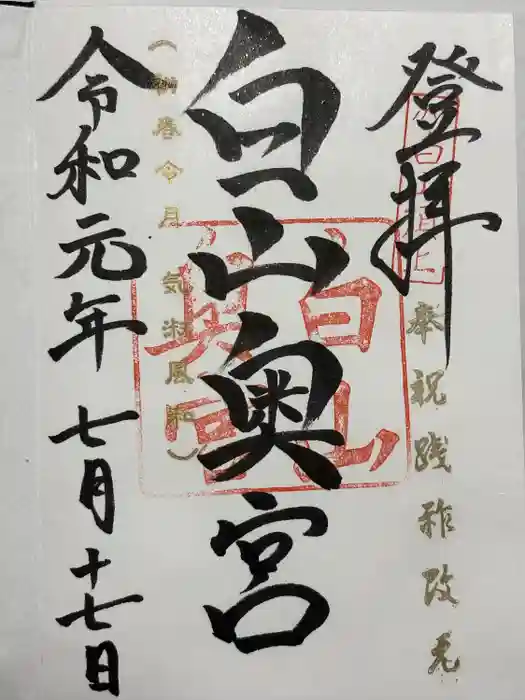 登拝
奉祝践祚改元
白山奥宮
白山
奥宮
(初春令月 気淑風和)
令和元年七月十七日